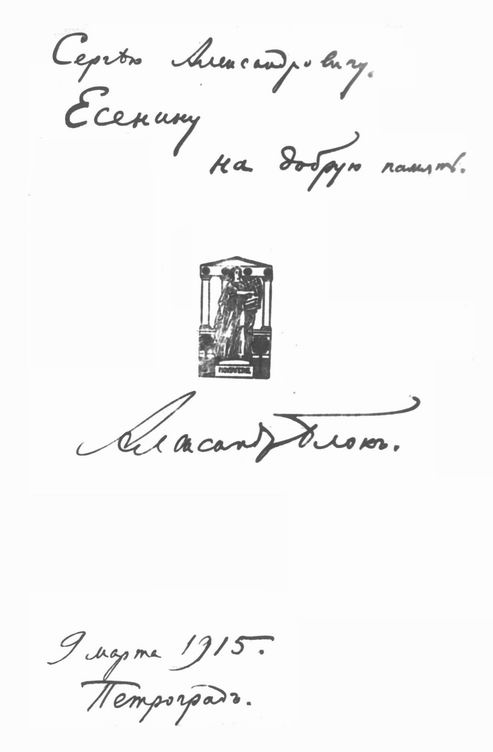 Сергѣю Александровичу
Есенину
на добрую память.
МУСАГЕТЪ
Александръ Блокъ.
9 марта 1915.
Петроградъ.